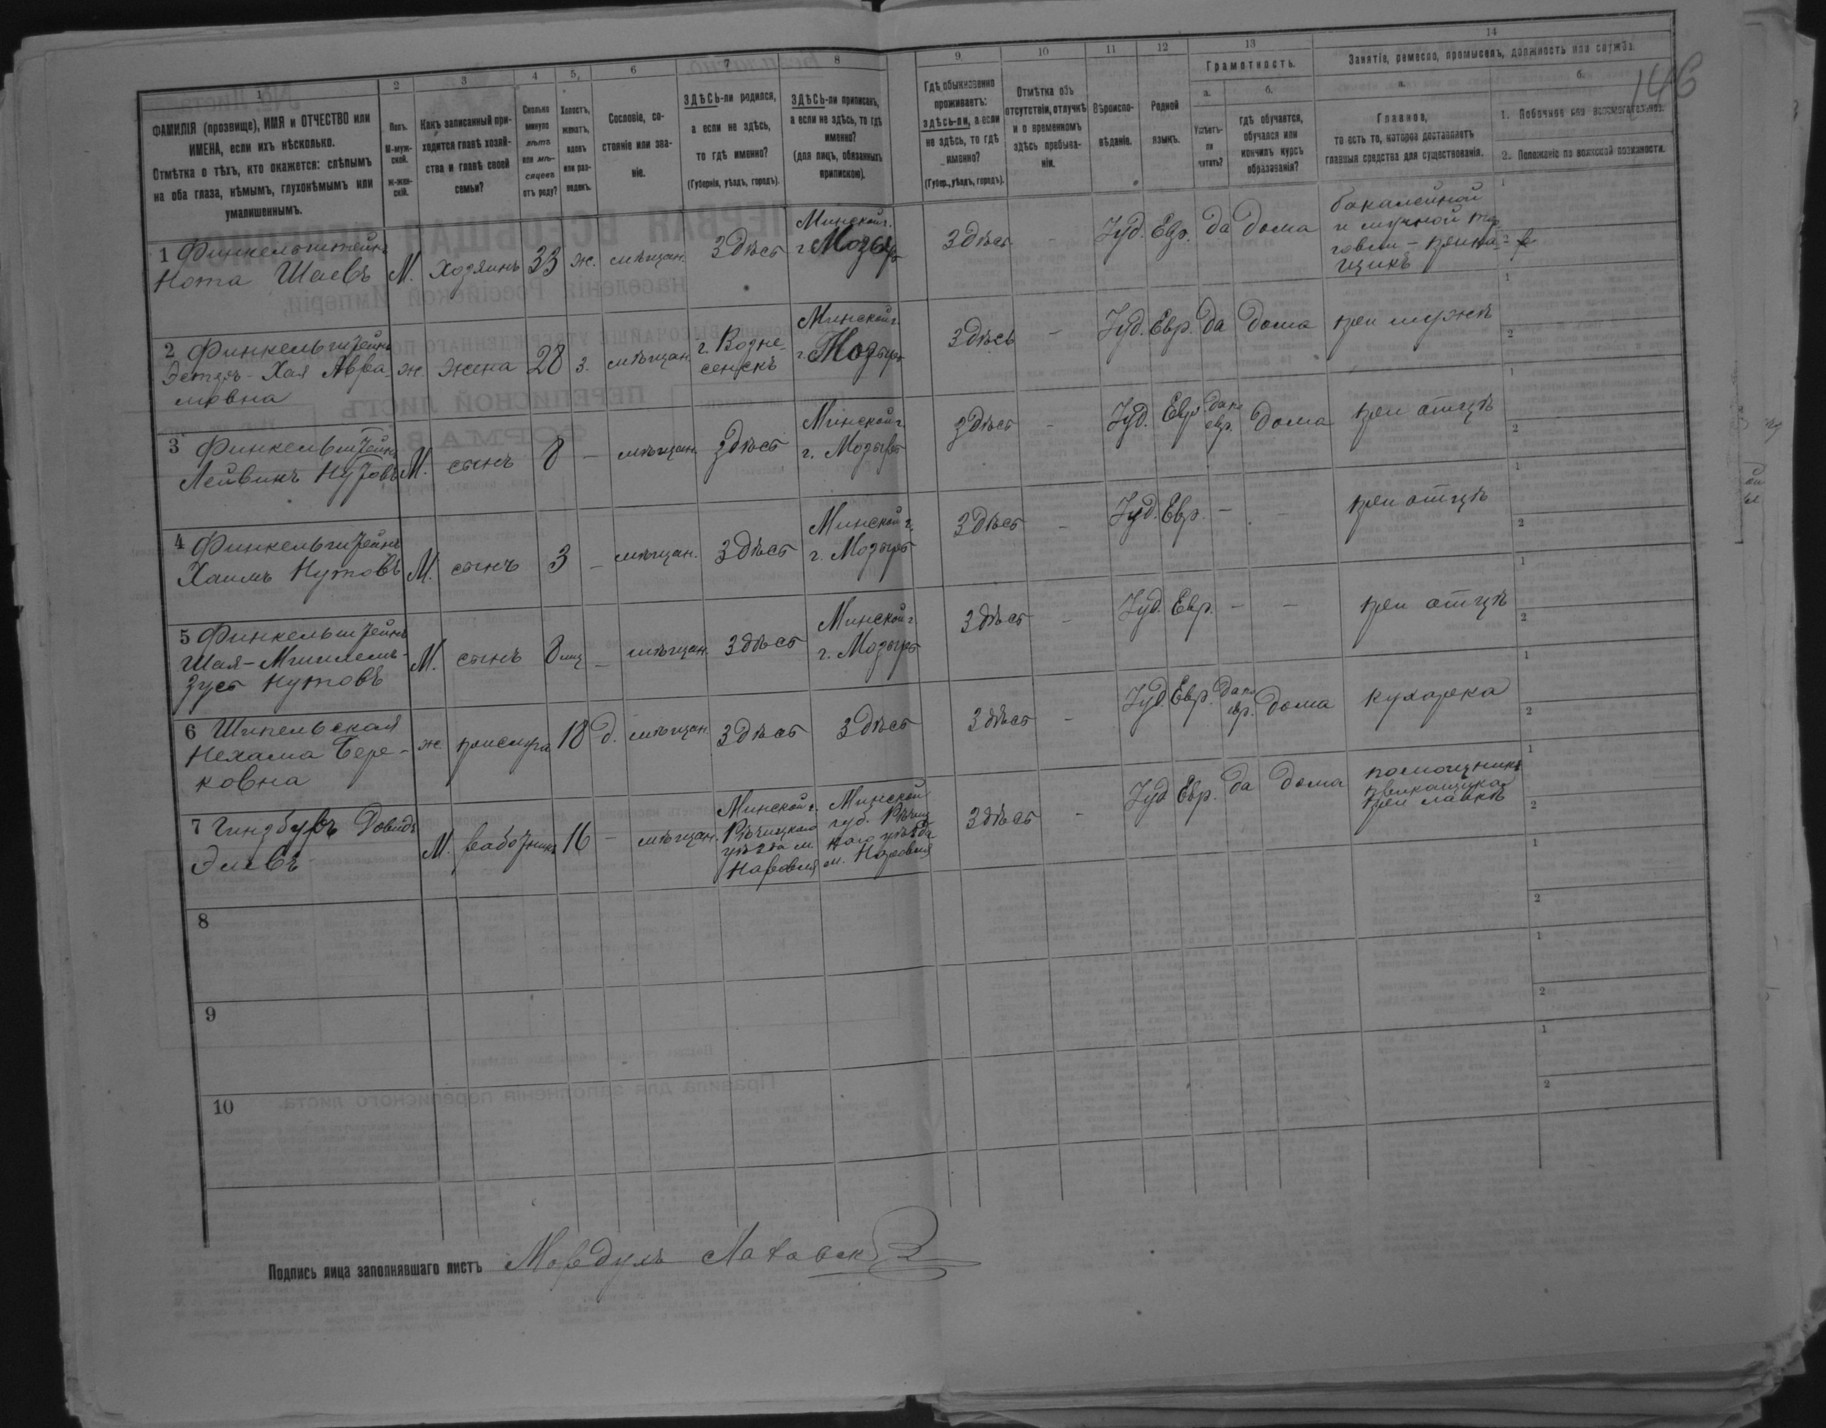 146
1
2
3
4
5
6
7
8
9
10
11
12
13
14
ФАМИЛІЯ (прозвище), ИМЯ и ОТЧЕСТВО или
ИМЕНА, если ихъ нѣсколько.
Отмѣтка о тѣхъ, кто окажется: слѣпымъ
на оба глаза, нѣмымъ, глухонѣмымъ или
умалишеннымъ.
Полъ.
М-муж-
ской.
ж-жен-
скій.
Какъ записанный при-
ходится главѣ хозяй-
ства и главѣ своей
семьи?
Сколько
минуло
лѣтъ
или мѣ-
сяцевъ
отъ роду?
Холостъ,
женатъ,
вдовъ
или раз-
веденъ.
Сословіе, со-
стояніе или зва-
ніе.
ЗДѢСЬ-ли родился,
а если не здѣсь,
то гдѣ именно?
(Губернія, уѣздъ, городъ).
ЗДѢСЬ-ли приписанъ,
а если не здѣсь, то гдѣ
именно?
(для лицъ, обязанныхъ
припискою).
Гдѣ обыкновенно
проживаетъ:
здѣсь-ли, а если
не здѣсь, то гдѣ
именно?
(Губер., уѣздъ, городъ).
Отмѣтка объ
отсутствіи, отлучкѣ
и о временномъ
здѣсь пребыва-
ніи.
Вѣроиспо-
вѣданіе.
Родной
языкъ.
Грамотность.
а.
Умѣетъ-
ли
читать?
б.
гдѣ обучается,
обучался или
кончилъ курсъ
образованія?
Занятіе, ремесло, промыселъ, должность или служба.
а.
Главное,
то есть то, которое доставляетъ
главныя средства для существованія.
б.
1. Побочное или вспомогательное.
2. Положеніе по воинской повинности.
1 Финкельштейнъ
Нота Шаевъ
М.
Хозяинъ
33
ж.
мѣщан.
Здѣсь
Минской г.
г. Мозырь
Здѣсь
–
Іуд.
Евр.
да
дома
бакалейной
и мучной тор
говли –
щикъ
2 Финкельштейнъ
Эстеръ-Хая Авра-
мовна
ж.
жена
28
з.
мѣщан.
г. Возне-
сенскъ
Минской г.
г. Мозырь
Здѣсь
–
Іуд.
Евр.
да
дома
при мужѣ
3 Финкельштейнъ
Лейвинъ Нутовъ
М.
сынъ
8
–
мѣщан.
Здѣсь
Минской г.
г. Мозырь
Здѣсь
–
Іуд.
Евр.
да по
евр.
дома
при отцѣ
4 Финкельштейнъ
Хаимъ Нутовъ
М.
сынъ
3
–
мѣщан.
Здѣсь
Минской г.
г. Мозырь
Здѣсь
–
Іуд.
Евр.
–
–
при отцѣ
5 Финкельштейнъ
Шая-
Нутовъ
М.
сынъ
8 мц
–
мѣщан.
Здѣсь
Минской г.
г. Мозырь
Здѣсь
–
Іуд.
Евр.
–
–
при отцѣ
6
Нехама Бере-
ковна
ж
прислуга
18
д.
мѣщан.
Здѣсь
Здѣсь
Здѣсь
–
Іуд.
Евр.
да по
евр.
дома
кухарка
7 Гинзбургъ Довидъ
М.
работникъ
16
–
мѣщан.
Минской г.
Рѣчицкаго
уѣзда м
Наровля
Минской
губ. Рѣчиц
каго уѣзда
м. Наровля
Здѣсь
–
Іуд
Евр.
да
дома
помощникъ
прикащика
при лавкѣ
8
9
10
Подпись лица заполнявшаго листъ